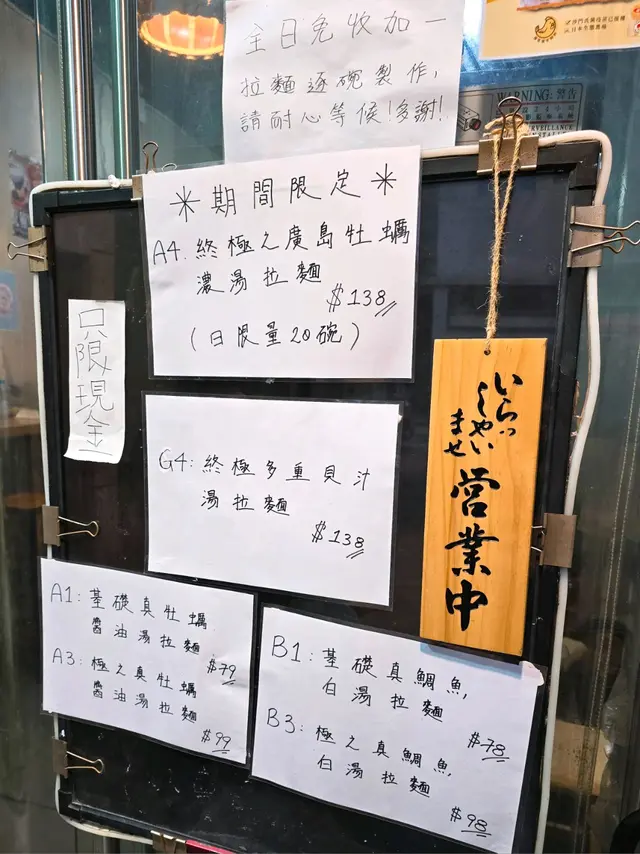 全日免收加一
拉麵逐碗製作,
請耐心等候!多謝!
WARNING: 警告
*期間限定*
A4. 終極之廣島牡蠣
濃湯拉麵
$138
(日限量20碗)
只限現金
G4: 終極多重貝汁
湯拉麵
$138
いらっ
しゃい
ませ
営業中
A1: 基礎真牡蠣
醬油湯拉麵
$79
A3: 極之真牡蠣
醬油湯拉麵
$99
B1: 基礎真鯛魚,
白湯拉麵
$78
B3: 極之真鯛魚,
白湯拉麵
$98